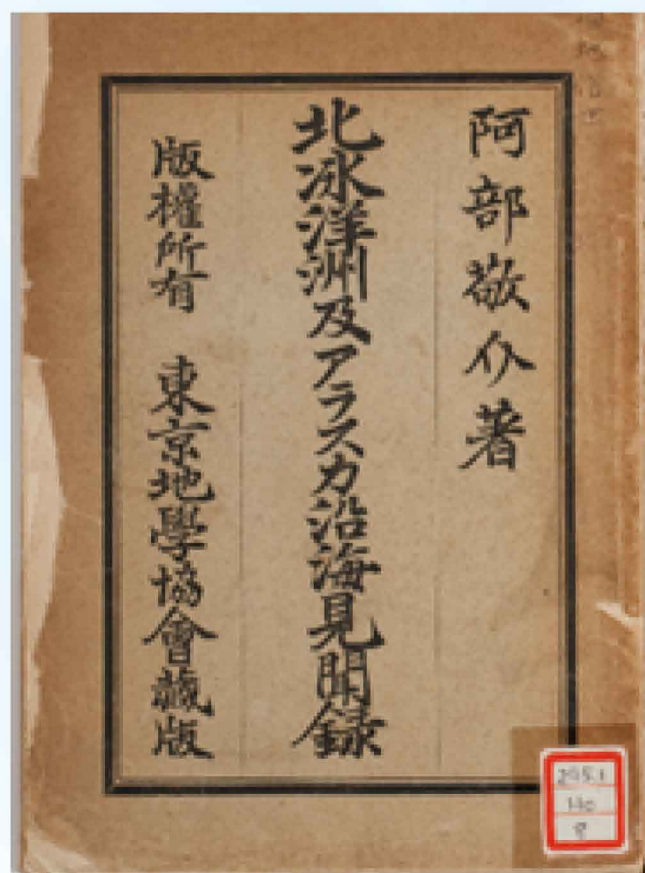 阿部敬介著
北氷洋洲及アラスカ沿海見聞録
版權所有　東京地學協會藏版